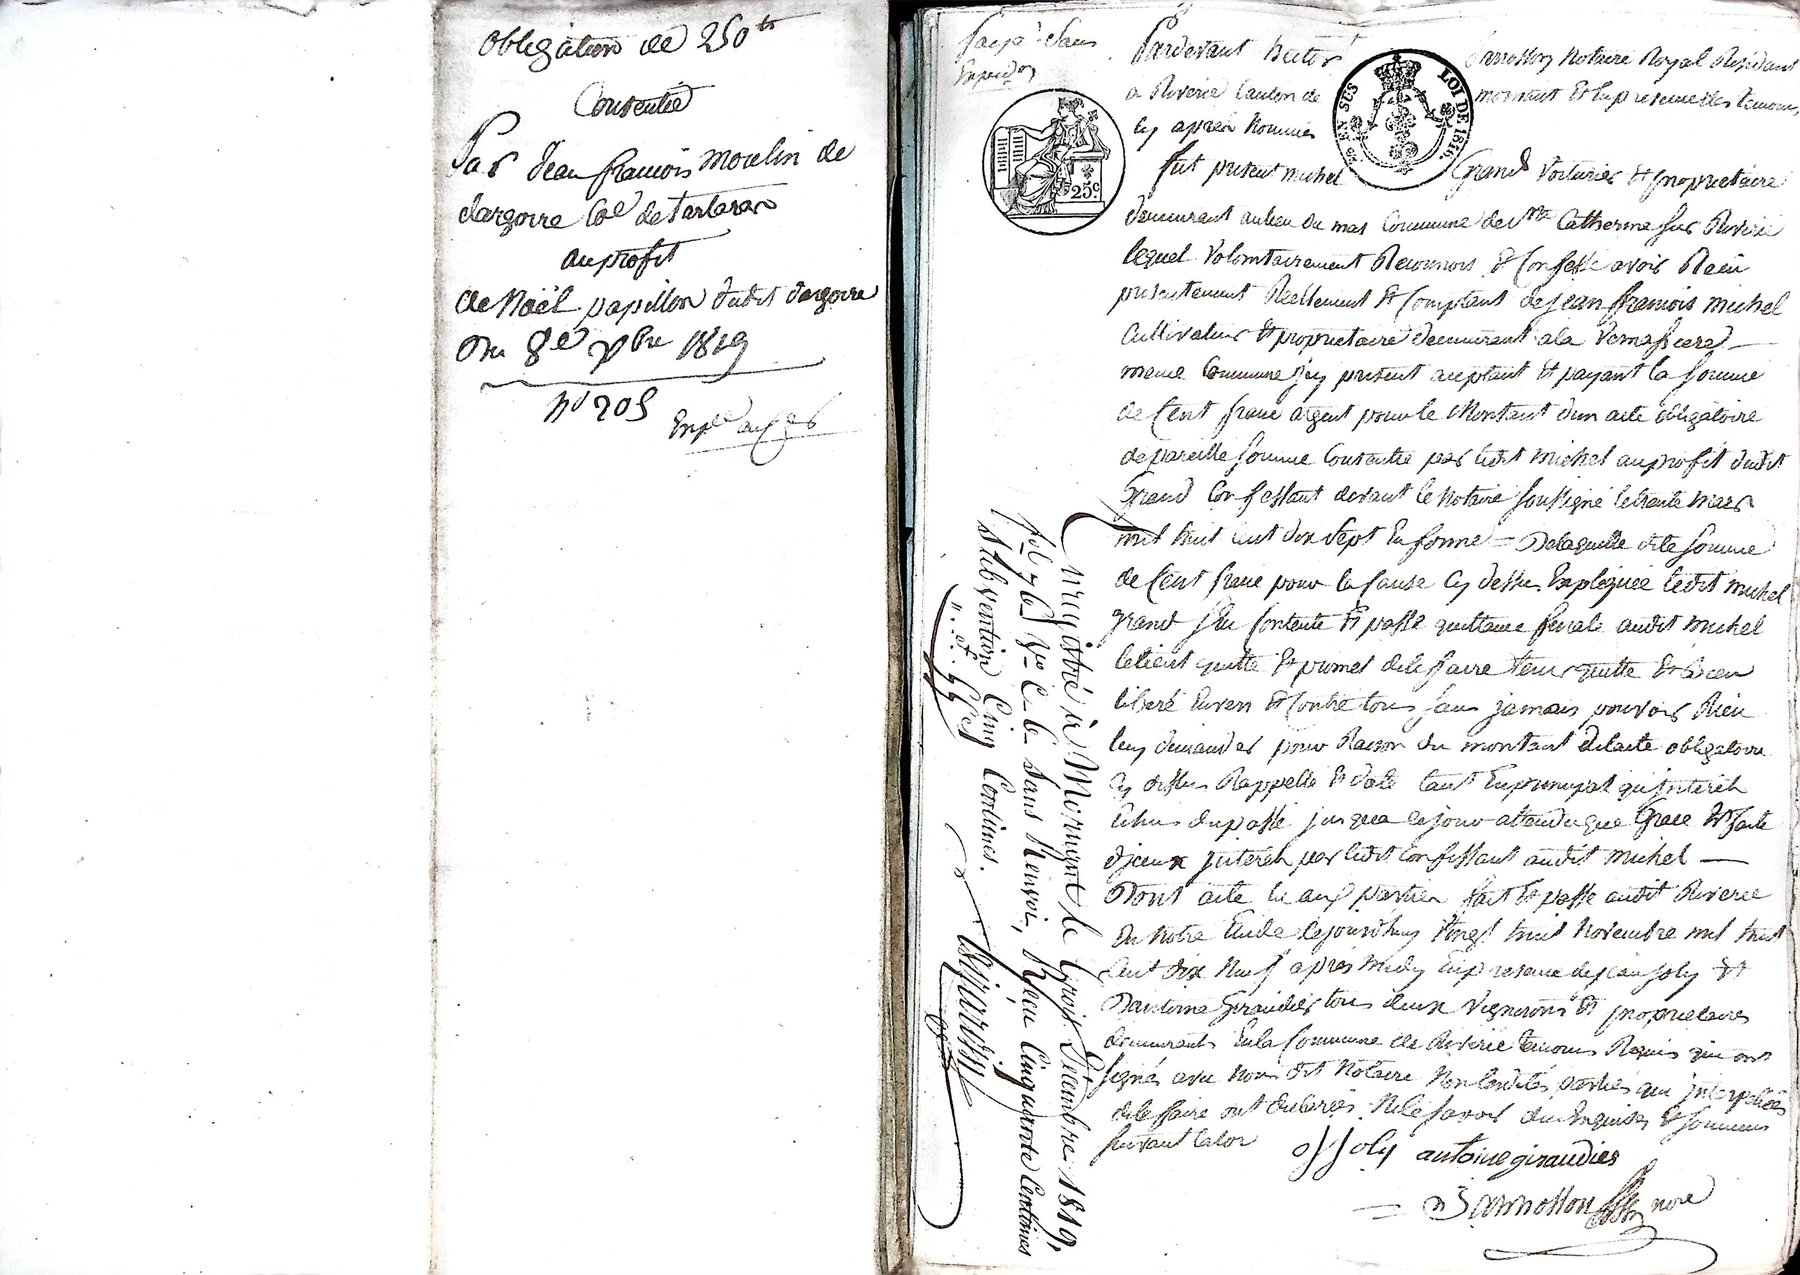 Obligation de 250 ₶
Consentie
Par Jean françois moulin de
dargoire Cne de tartaras
au profit
de Noël papillon dudit dargoire
Du 8e xbre 1819
No 205
Expé aux
payé Sans
Expedon
Pardevant hector Notaire Royal Résidant
a Riverie Canton de mornant Et En presence des temoins
Cy aprés Nommés
AN SUS
LOI DE 1816.
25c.
fut présent michel Grand Voiturier Et proprietaire
demeurant au lieu du mas Commune de Ste Catherine sur Riverie
lequel Volontairement Reconnois Et Confesse avoir Recu
presentement Réellement Et Comptant de jean françois michel
Cultivateur Et proprietaire demeurant a la
meme Commune jcy présent acceptant Et payant la somme
de Cent franc argent pour le Montant d'un acte obligatoire
de pareille somme Consentie par ledit michel au profit dudit
Grand Confessant devant le notaire soussigné le trente mars
mil huit cent dix sept En forme = De laquelle dite somme
de Cent franc pour la Cause Cy dessus Expliquée ledit michel
grand sen Contente Et passe quittance finale audit michel
le tient quitte Et promet de le faire tenir quitte Et bien
libéré Envers Et Contre tous sans jamais pouvoir Rien
luy demander pour Raison du montant dudit acte obligatoire
Cy dessus Rappellé Et daté tant En principal qu'jnterêts
Echus du passé jusqua ce jour attendu que Grace Est faite
d'jceux jnterêts par ledit Confessant audit michel —
Dont acte lu aux parties fait Et passé audit Riverie
En Notre Etude le jourd'huy Vingt huit Novembre mil huit
Cent dix Neuf aprés midy En presence de jean joly Et
D'antoine Giraudier tous deux Vignerons Et proprietaires
demeurants En la Commune de Riverie temoins Requis qui ont
signés avec Nous dit Notaire Non lesdites parties qui jnterpellées
de le faire ont declarées Ne le savoir du Enquises Et sommées
suivant la loi
J Joly antoine giraudier
nore
Enregistré à Mornant le trois Décembre 1819,
fol. 76 Vo C. 6 Sans Renvoi, Reçu Cinquante Centimes
Subvention Cinq Centimes.
,, .. 55